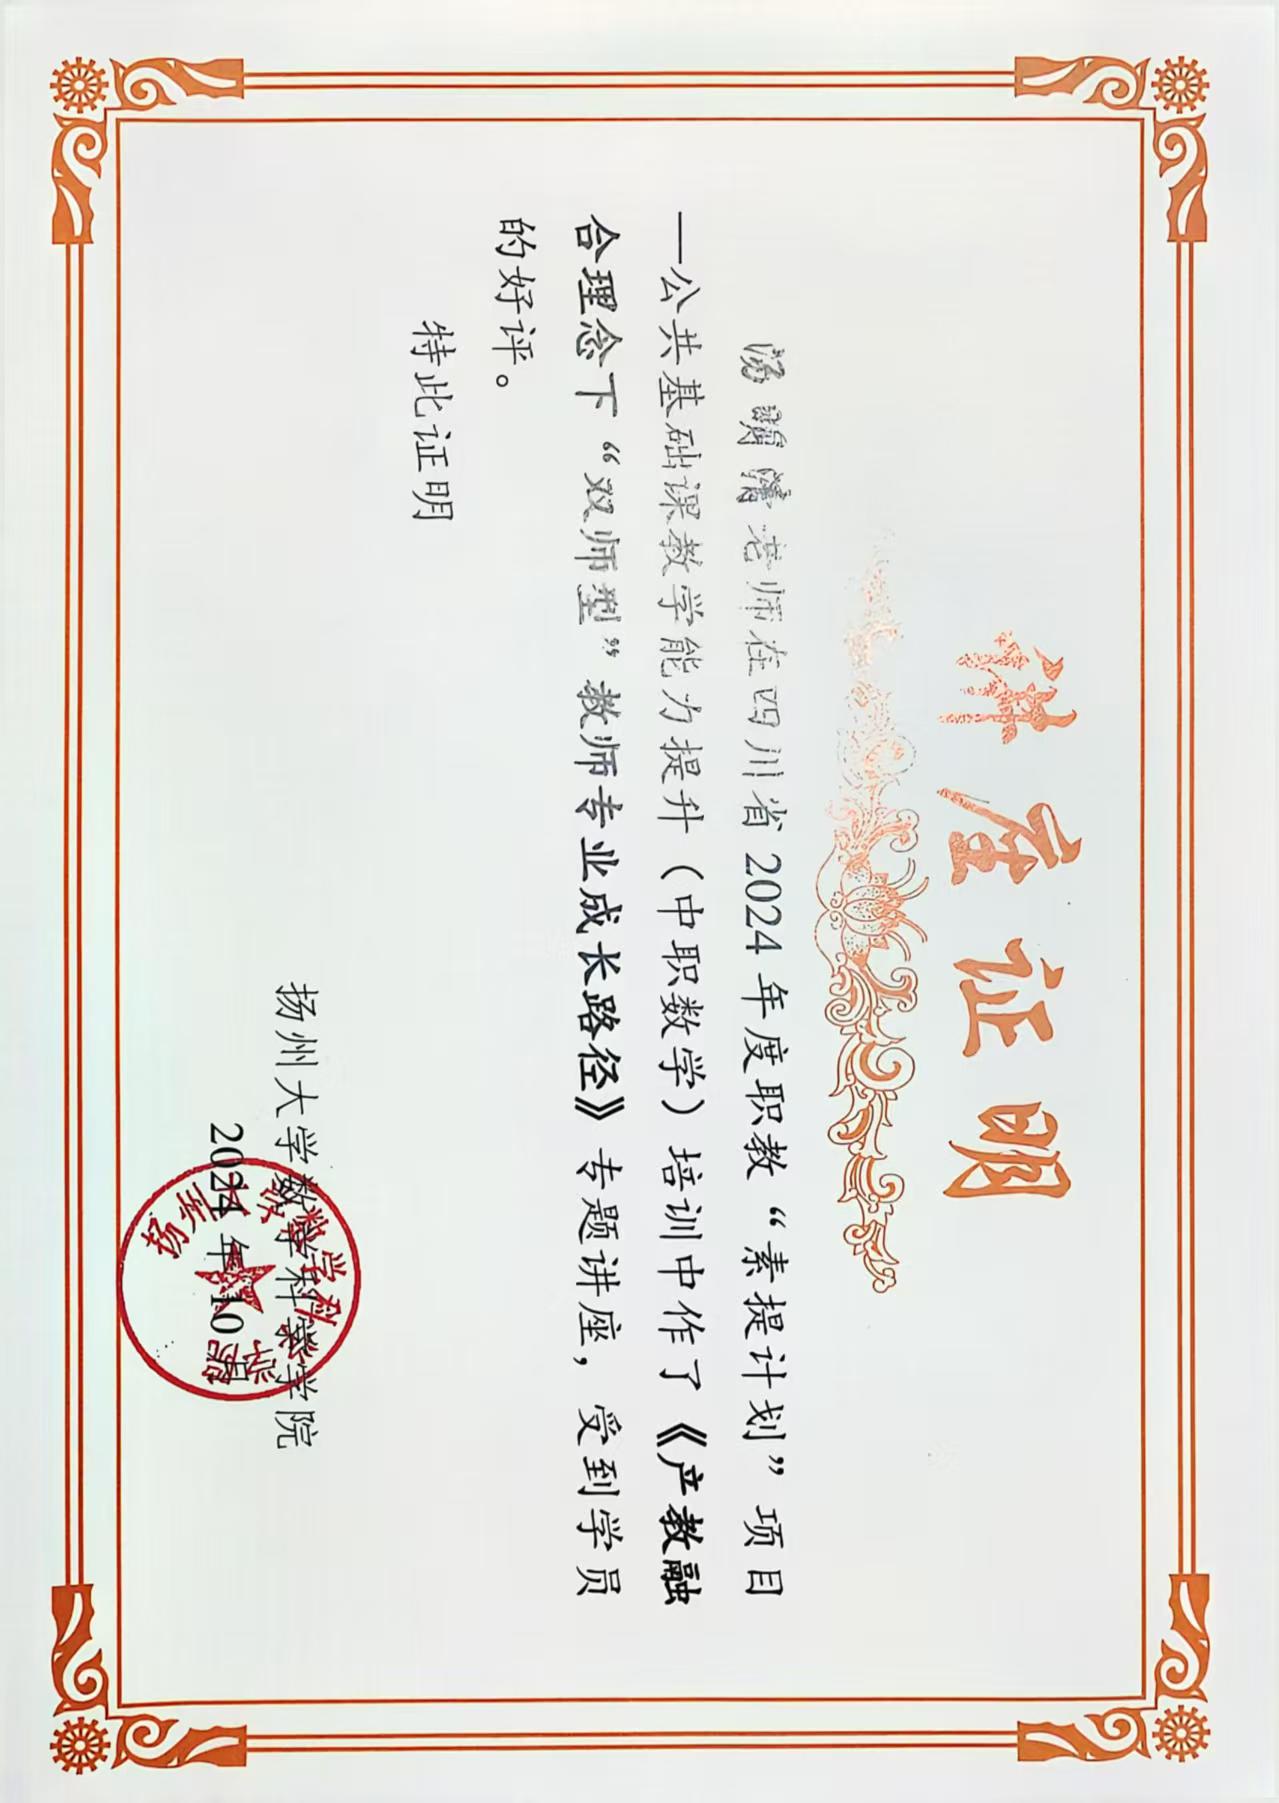 讲座证明
汤 老师在四川省2024年度职教“素提计划”项目
—公共基础课教学能力提升（中职数学）培训中作了《产教融
合理念下“双师型”教师专业成长路径》专题讲座，受到学员
的好评。
特此证明
扬州大学数学科学学院
2024年10月
扬州大学数学科学学院